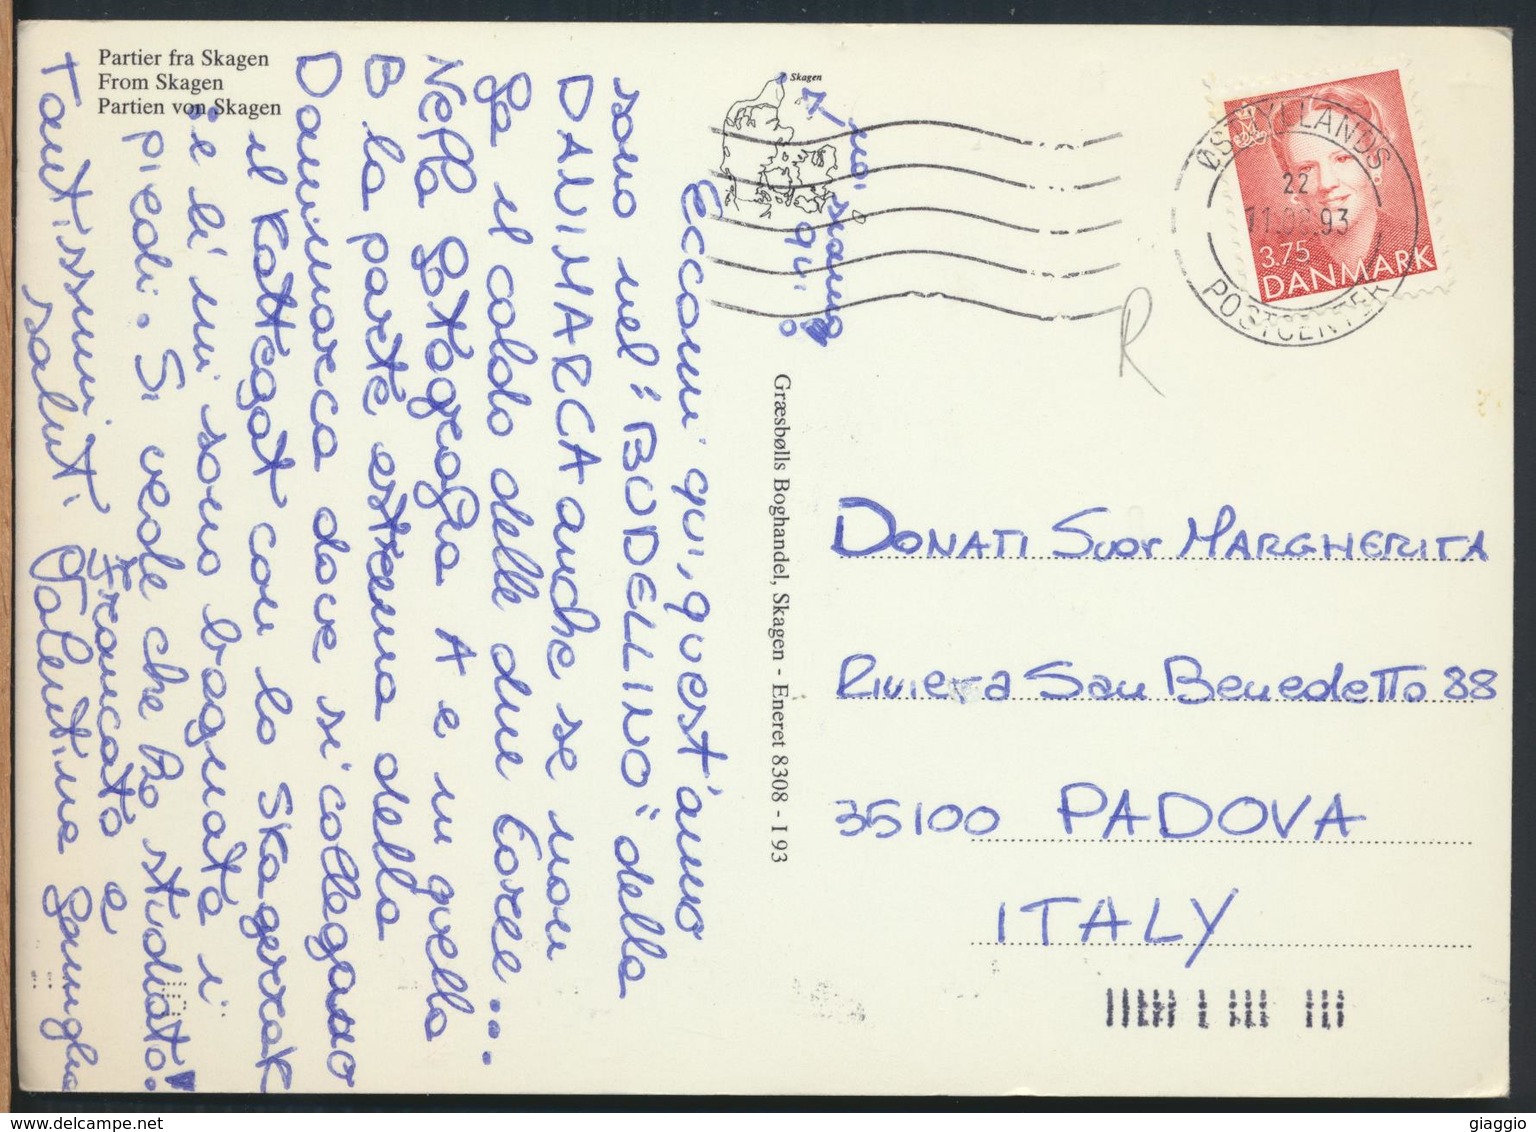 Partier fra Skagen
From Skagen
Partien von Skagen
Skagen
noi siamo
qui!
Eccomi qui, quest'anno
sono nel "BUDELLINO" della
DANIMARCA anche se non
fa il caldo delle due Coree...
Nella fotografia A e in quella
B la parte estrema della
Danimarca dove si collegano
il Kattegat con lo Skagerrak
e lì mi sono bagnata i
piedi. Si vede che ho studiato!
Tantissimi Francato e
saluti Valentina famiglia
Græsbølls Boghandel, Skagen - Eneret 8308 - I 93
ØSTJYLLANDS
22
11.08.93
POSTCENTER
3.75
DANMARK
R
DONATI Suor MARGHERITA
Riviera San Benedetto 88
35100 PADOVA
ITALY
giaggio